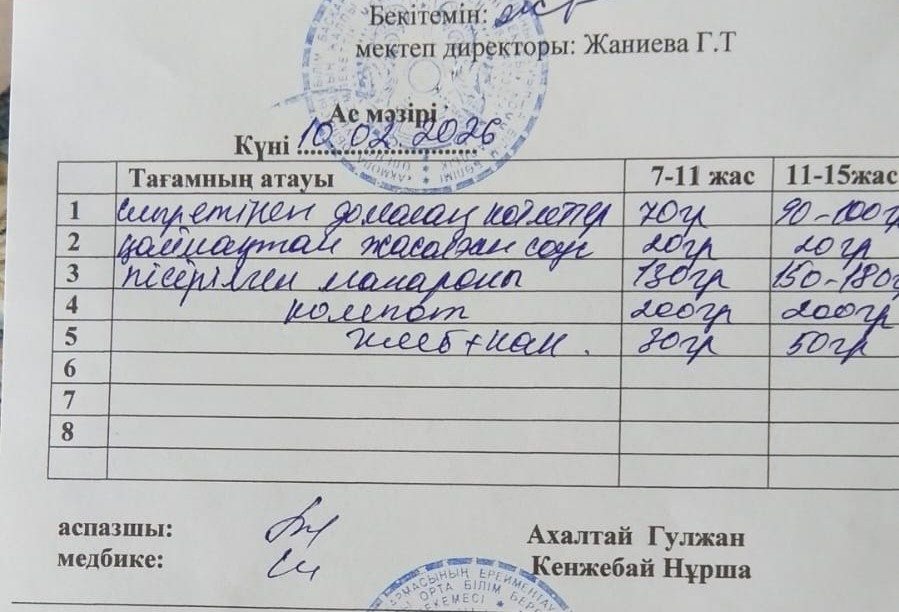 Бекітемін:
мектеп директоры: Жаниева Г.Т
Ас мәзірі
Күні 10.02.2026
Тағамның атауы 7-11 жас 11-15жас
1 сиыр етінен домалақ котлеттер 70гр 90-100гр
2 қаймақтан жасалған соус 20гр 20гр
3 пісірілген макароны 130гр 150-180гр
4 компот 200гр 200гр
5 хлеб+нан. 30гр 50гр
6
7
8
аспазшы: Ахалтай Гулжан
медбике: Кенжебай Нұрша
ЕРЕЙМЕНТАУ
ОРТА БІЛІМ БЕРЕ